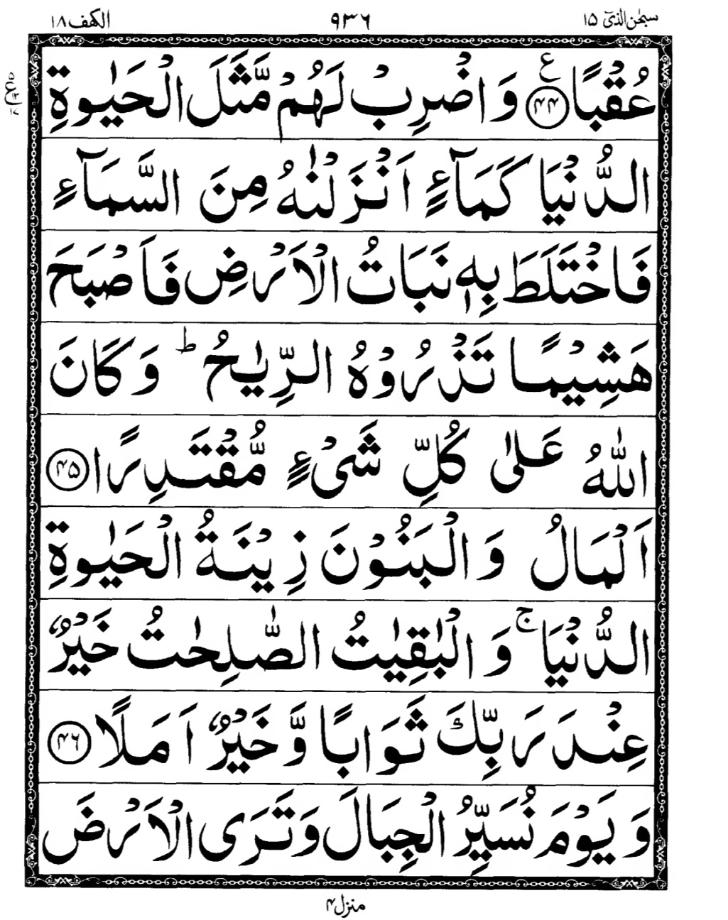 سبحٰن الذیٓ ۱۵
۹۳۶
الکهف ۱۸
عُقْبًا ﴿۴۴﴾ ع وَاضْرِبْ لَهُمْ مَّثَلَ الْحَيٰوةِ
الدُّنْيَا كَمَآءٍ اَنْزَلْنٰهُ مِنَ السَّمَآءِ
فَاخْتَلَطَ بِهٖ نَبَاتُ الْاَرْضِ فَاَصْبَحَ
هَشِيْمًا تَذْرُوْهُ الرِّيٰحُ ؕ وَكَانَ
اللّٰهُ عَلٰى كُلِّ شَىْءٍ مُّقْتَدِرًا ﴿۴۵﴾
اَلْمَالُ وَالْبَنُوْنَ زِيْنَةُ الْحَيٰوةِ
الدُّنْيَا ۚ وَالْبٰقِيٰتُ الصّٰلِحٰتُ خَيْرٌ
عِنْدَ رَبِّكَ ثَوَابًا وَّخَيْرٌ اَمَلًا ﴿۴۶﴾
وَيَوْمَ نُسَيِّرُ الْجِبَالَ وَتَرَى الْاَرْضَ
منزل ۴